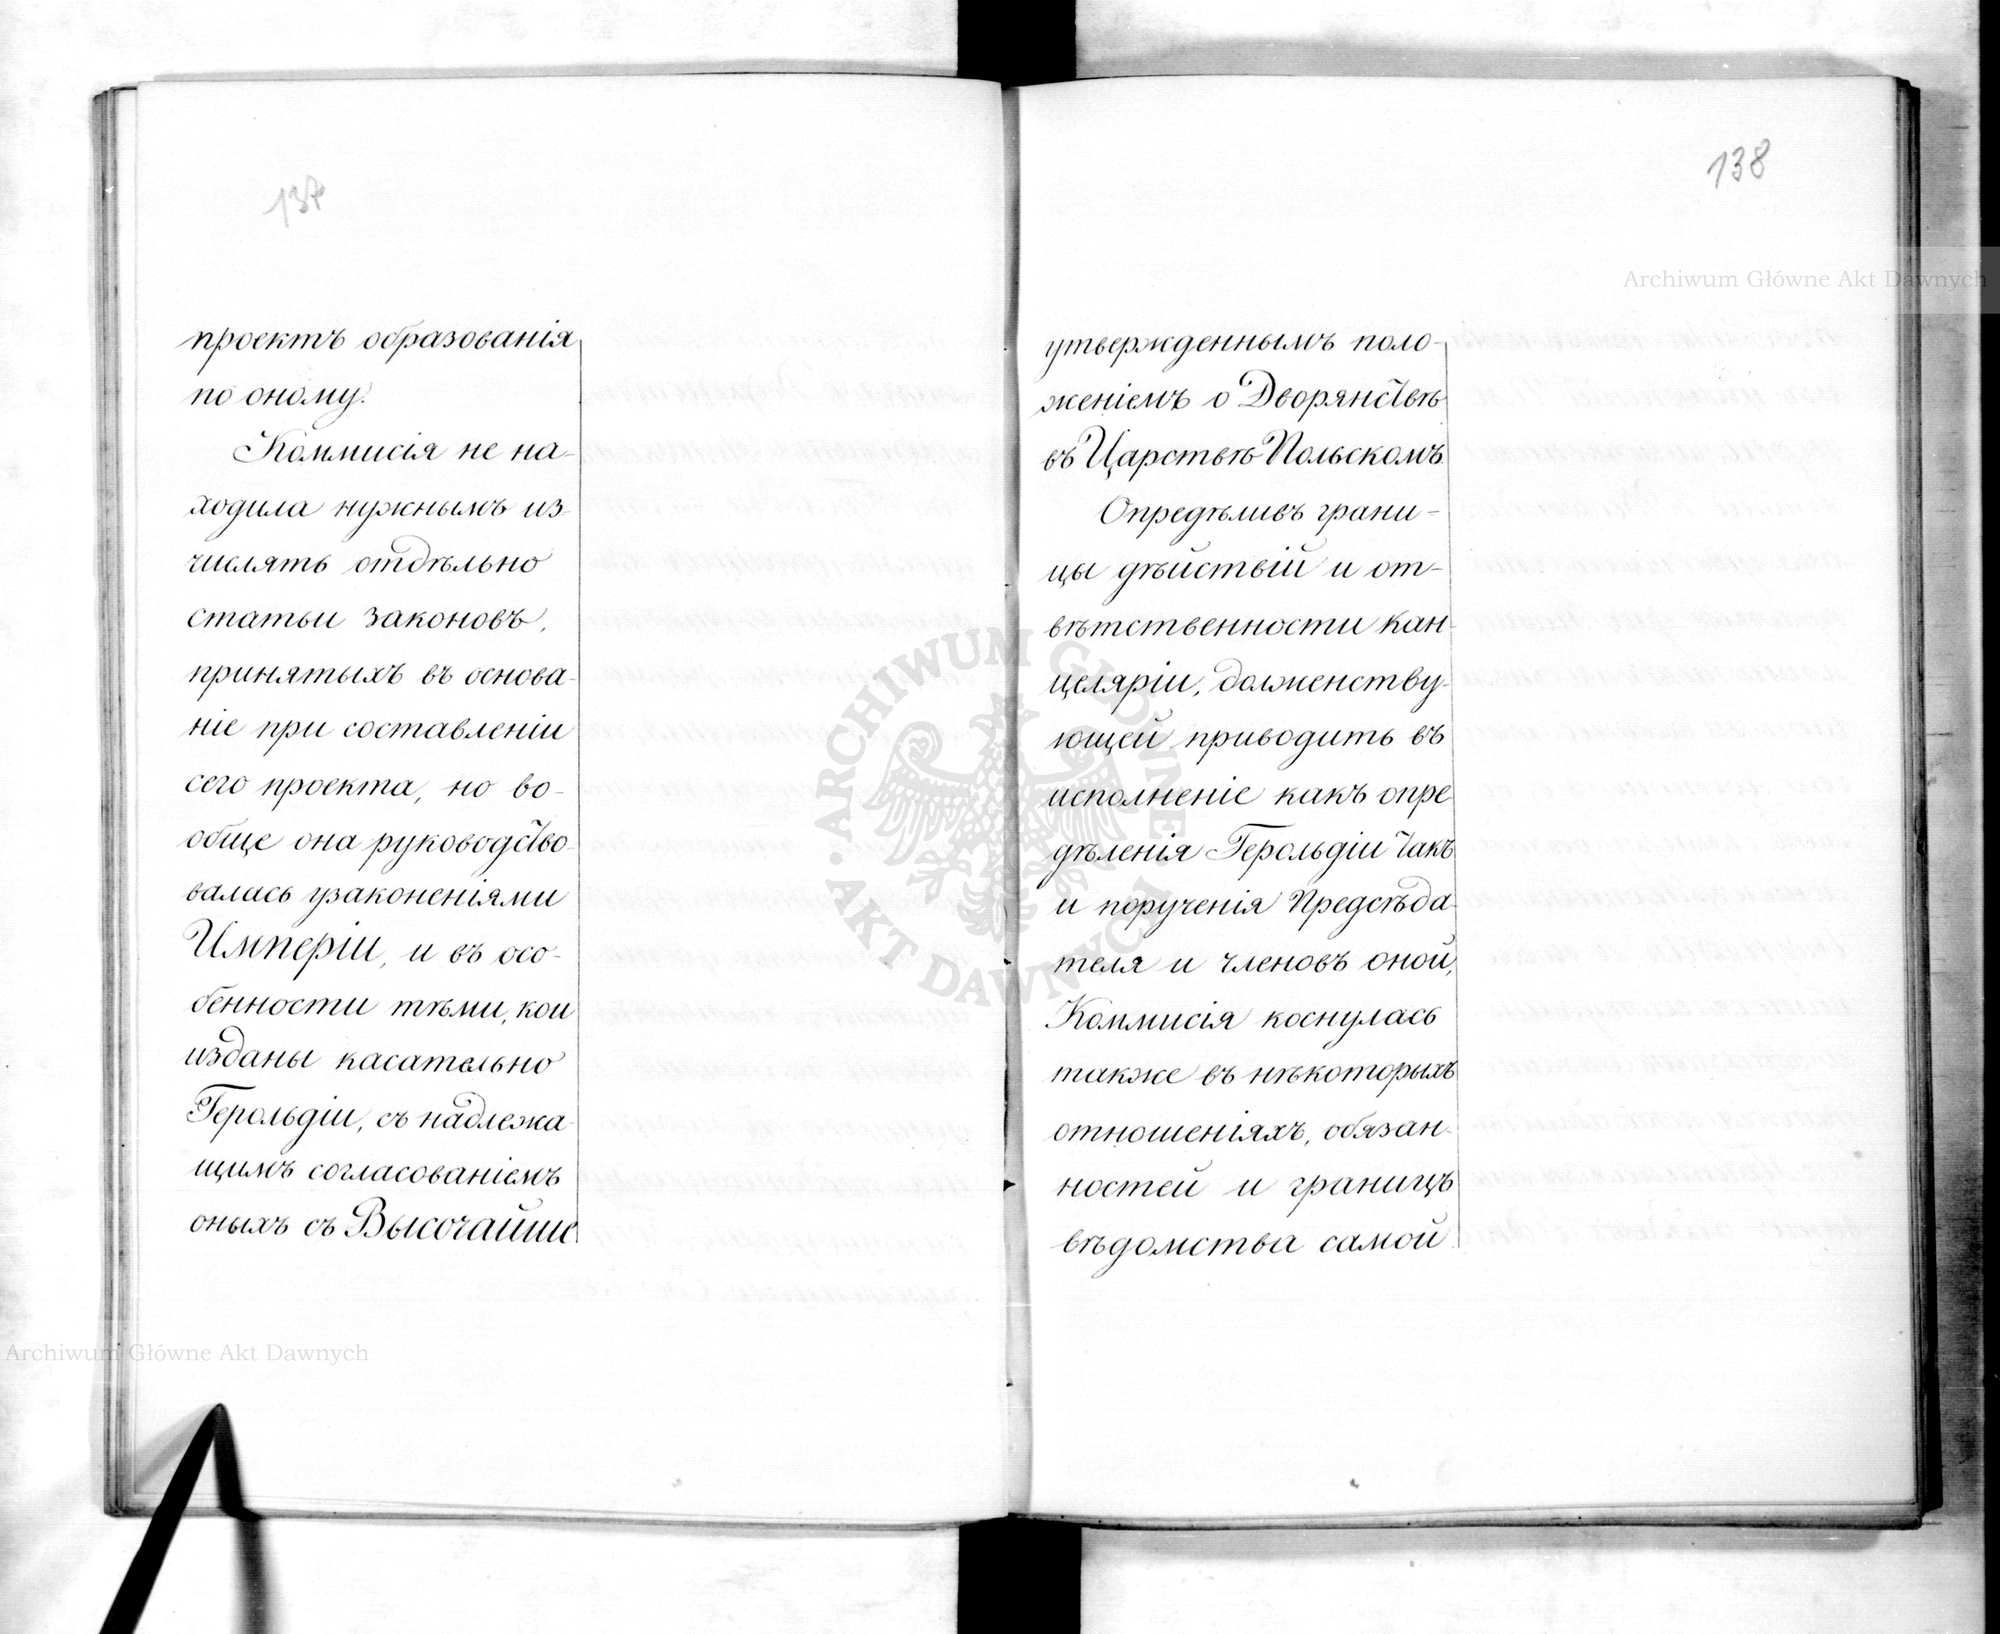 137
проектъ образованія
по оному.
Коммисія не на-
ходила нужнымъ из-
числять отдѣльно
статьи законовъ,
принятыхъ въ основа-
ніе при составленіи
сего проекта, но во-
обще она руководство-
валась узаконеніями
Имперіи, и въ осо-
бенности тѣми, кои
изданы касательно
Герольдіи, съ надлежа-
щимъ согласованіемъ
оныхъ съ Высочайше
138
утвержденнымъ поло-
женіемъ о Дворянствѣ
въ Царствѣ Польскомъ
Опредѣливъ грани-
цы дѣйствій и от-
вѣтственности кан-
целяріи, долженству-
ющей приводить въ
исполненіе какъ опре-
дѣленія Герольдіи такъ
и порученія Предсѣда-
теля и членовъ оной,
Коммисія коснулась
также въ нѣкоторыхъ
отношеніяхъ, обязан-
ностей и границъ
вѣдомства самой
Archiwum Główne Akt Dawnych
ARCHIWUM GŁÓWNE AKT DAWNYCH
Archiwum Główne Akt Dawnych